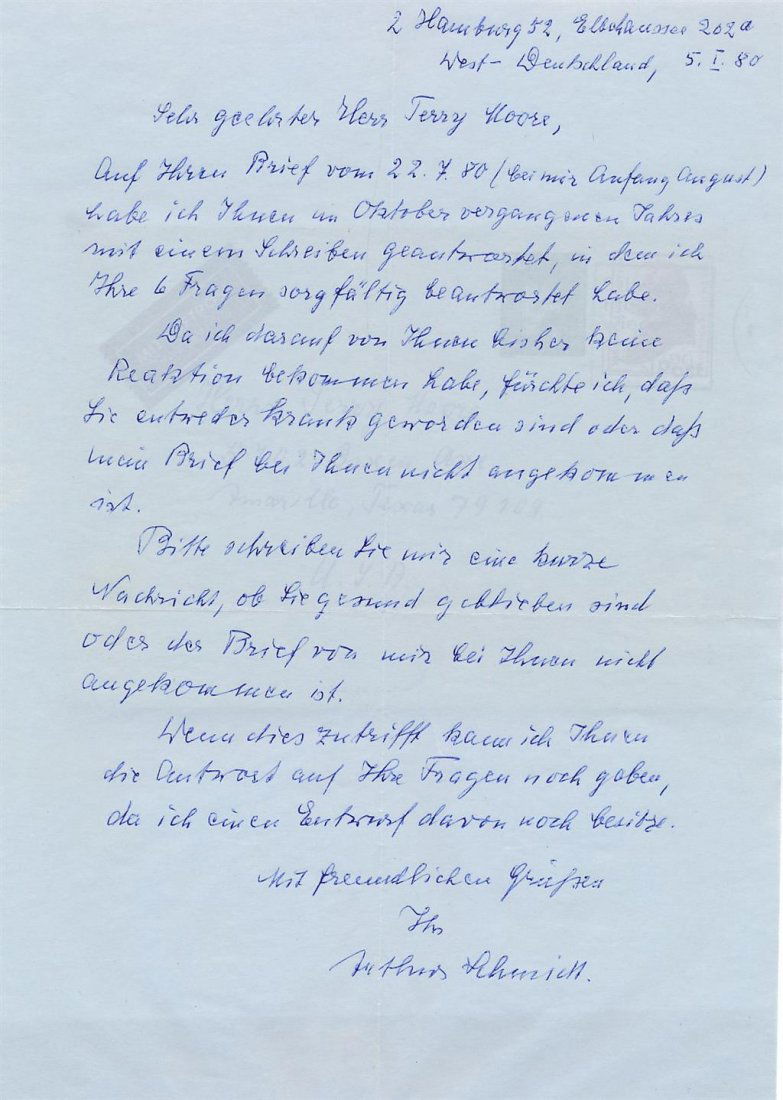 2 Hamburg 52, Elbchaussee 202a
West-Deutschland, 5. I. 80
Sehr geehrter Herr Terry Moore,
Auf Ihren Brief vom 22. 7. 80 (bei mir Anfang August)
habe ich Ihnen im Oktober vergangenen Jahres
mit einem Schreiben geantwortet, in dem ich
Ihre 6 Fragen sorgfältig beantwortet habe.
Da ich darauf von Ihnen bisher keine
Reaktion bekommen habe, fürchte ich, daß
Sie entweder krank geworden sind oder daß
mein Brief bei Ihnen nicht angekommen
ist.
Bitte schreiben Sie mir eine kurze
Nachricht, ob Sie gesund geblieben sind
oder der Brief von mir bei Ihnen nicht
angekommen ist.
Wenn dies zutrifft kann ich Ihnen
die Antwort auf Ihre Fragen noch geben,
da ich einen Entwurf davon noch besitze.
Mit freundlichen Grüßen
Ihr
Arthur Schmidt.